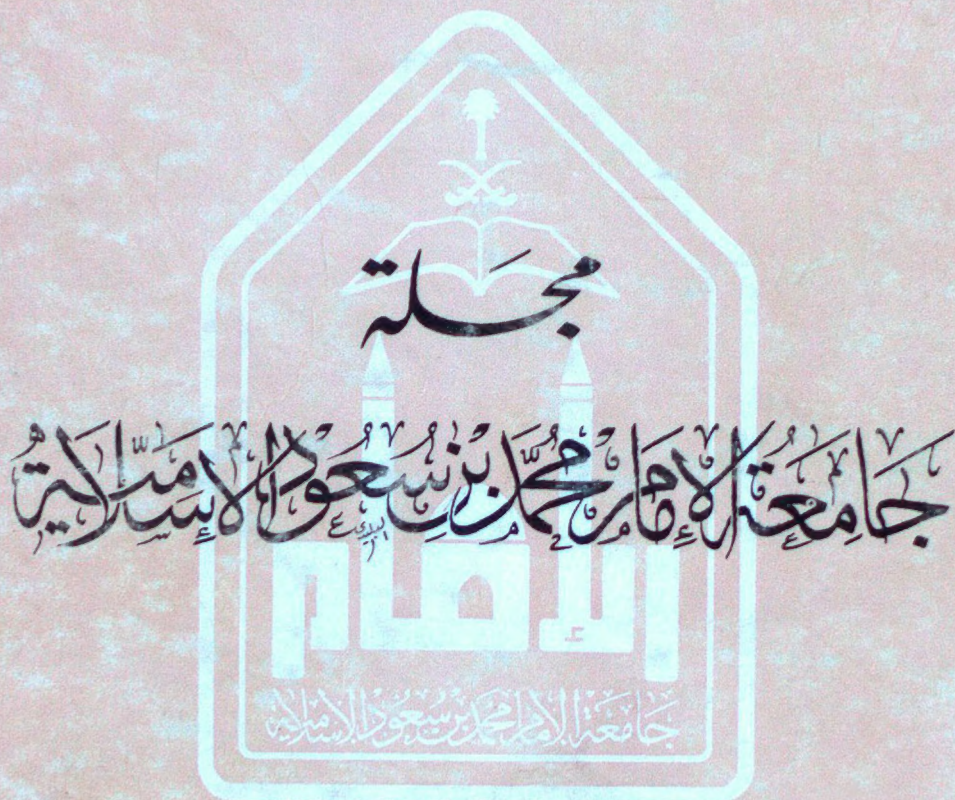 مجلة
جَامِعَة الإِمَام مُحَمَّد بْن سُعُود الإِسْلَامِيَّة
الإمام
جامعة الإمام محمد بن سعود الإسلامية